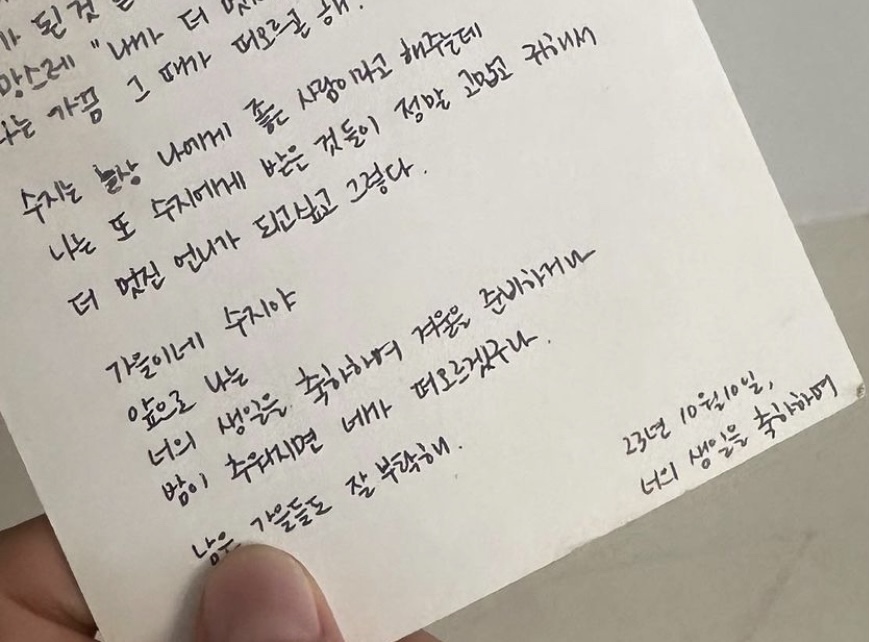 가 된 것
망스레 "내가 더
나는 가끔 그 때가 떠오르곤 해.
수지는 늘상 나에게 좋은 사람이라고 해주는데
나는 또 수지에게 받은 것들이 정말 고맙고 귀해서
더 멋진 언니가 되고싶고 그렇다.
가을이네 수지야
앞으로 나는
너의 생일을 축하하며 겨울을 준비하거나
밤이 추워지면 네가 떠오르겠구나.
남은 가을들도 잘 부탁해.
23년 10월10일,
너의 생일을 축하하며